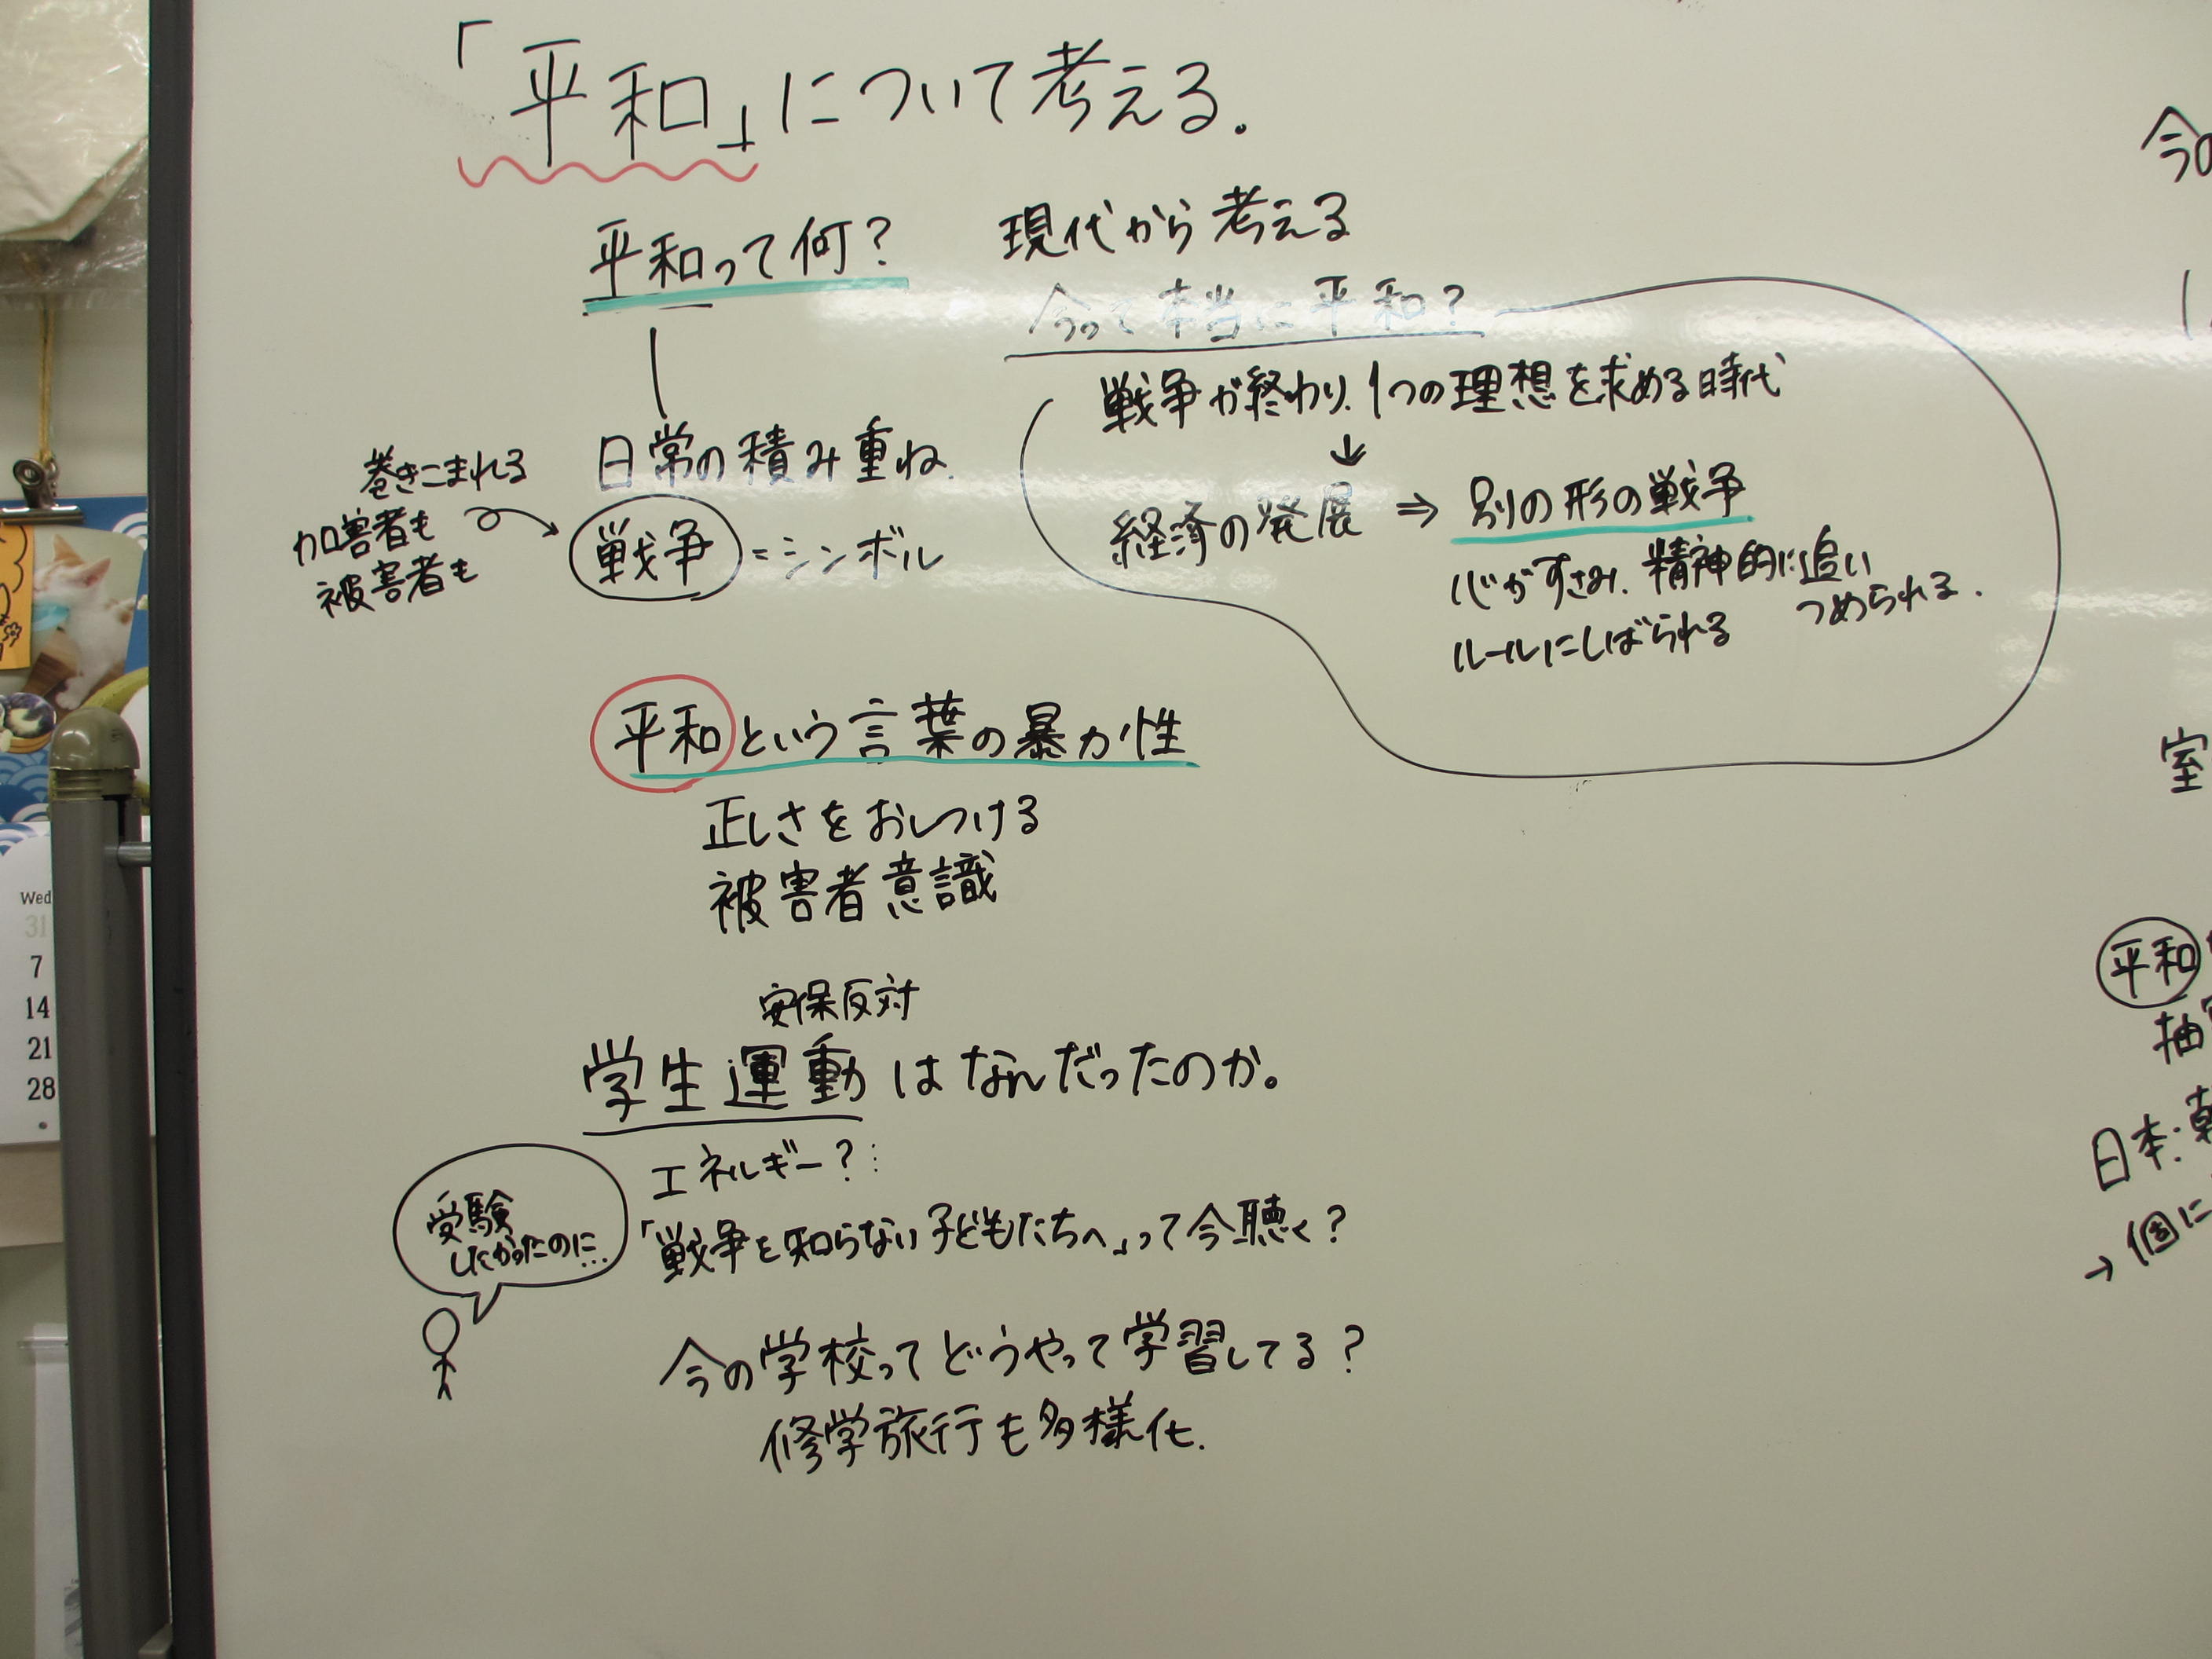 「平和」について考える.
平和って何?
日常の積み重ね.
巻きこまれる
加害者も
被害者も
戦争=シンボル
現代から考える
今って本当に平和?
戦争が終わり、1つの理想を求める時代
↓
経済の発展 ⇒ 別の形の戦争
心がすさみ、精神的に追い
つめられる.
ルールにしばられる
平和という言葉の暴力性
正しさをおしつける
被害者意識
安保反対
学生運動はなんだったのか。
エネルギー?…
受験
したかったのに…
「戦争を知らない子どもたちへ」って今聴く?
今の学校ってどうやって学習してる?
修学旅行も多様化.
今の
室
平和
日本:
→個に
Wed
31
7
14
21
28